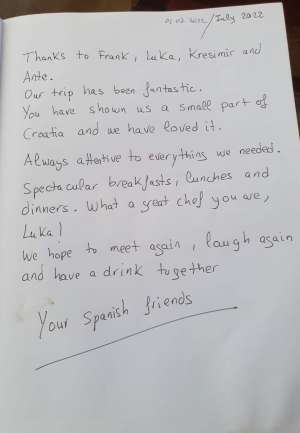 /July 2022
Thanks to Frank, Luka, Kresimir and
Ante.
Our trip has been fantastic.
You have shown us a small part of
Croatia and we have loved it.
Always attentive to everything we needed.
Spectacular breakfasts, lunches and
dinners. What a great chef you are,
Luka!
We hope to meet again, laugh again
and have a drink together
Your Spanish friends